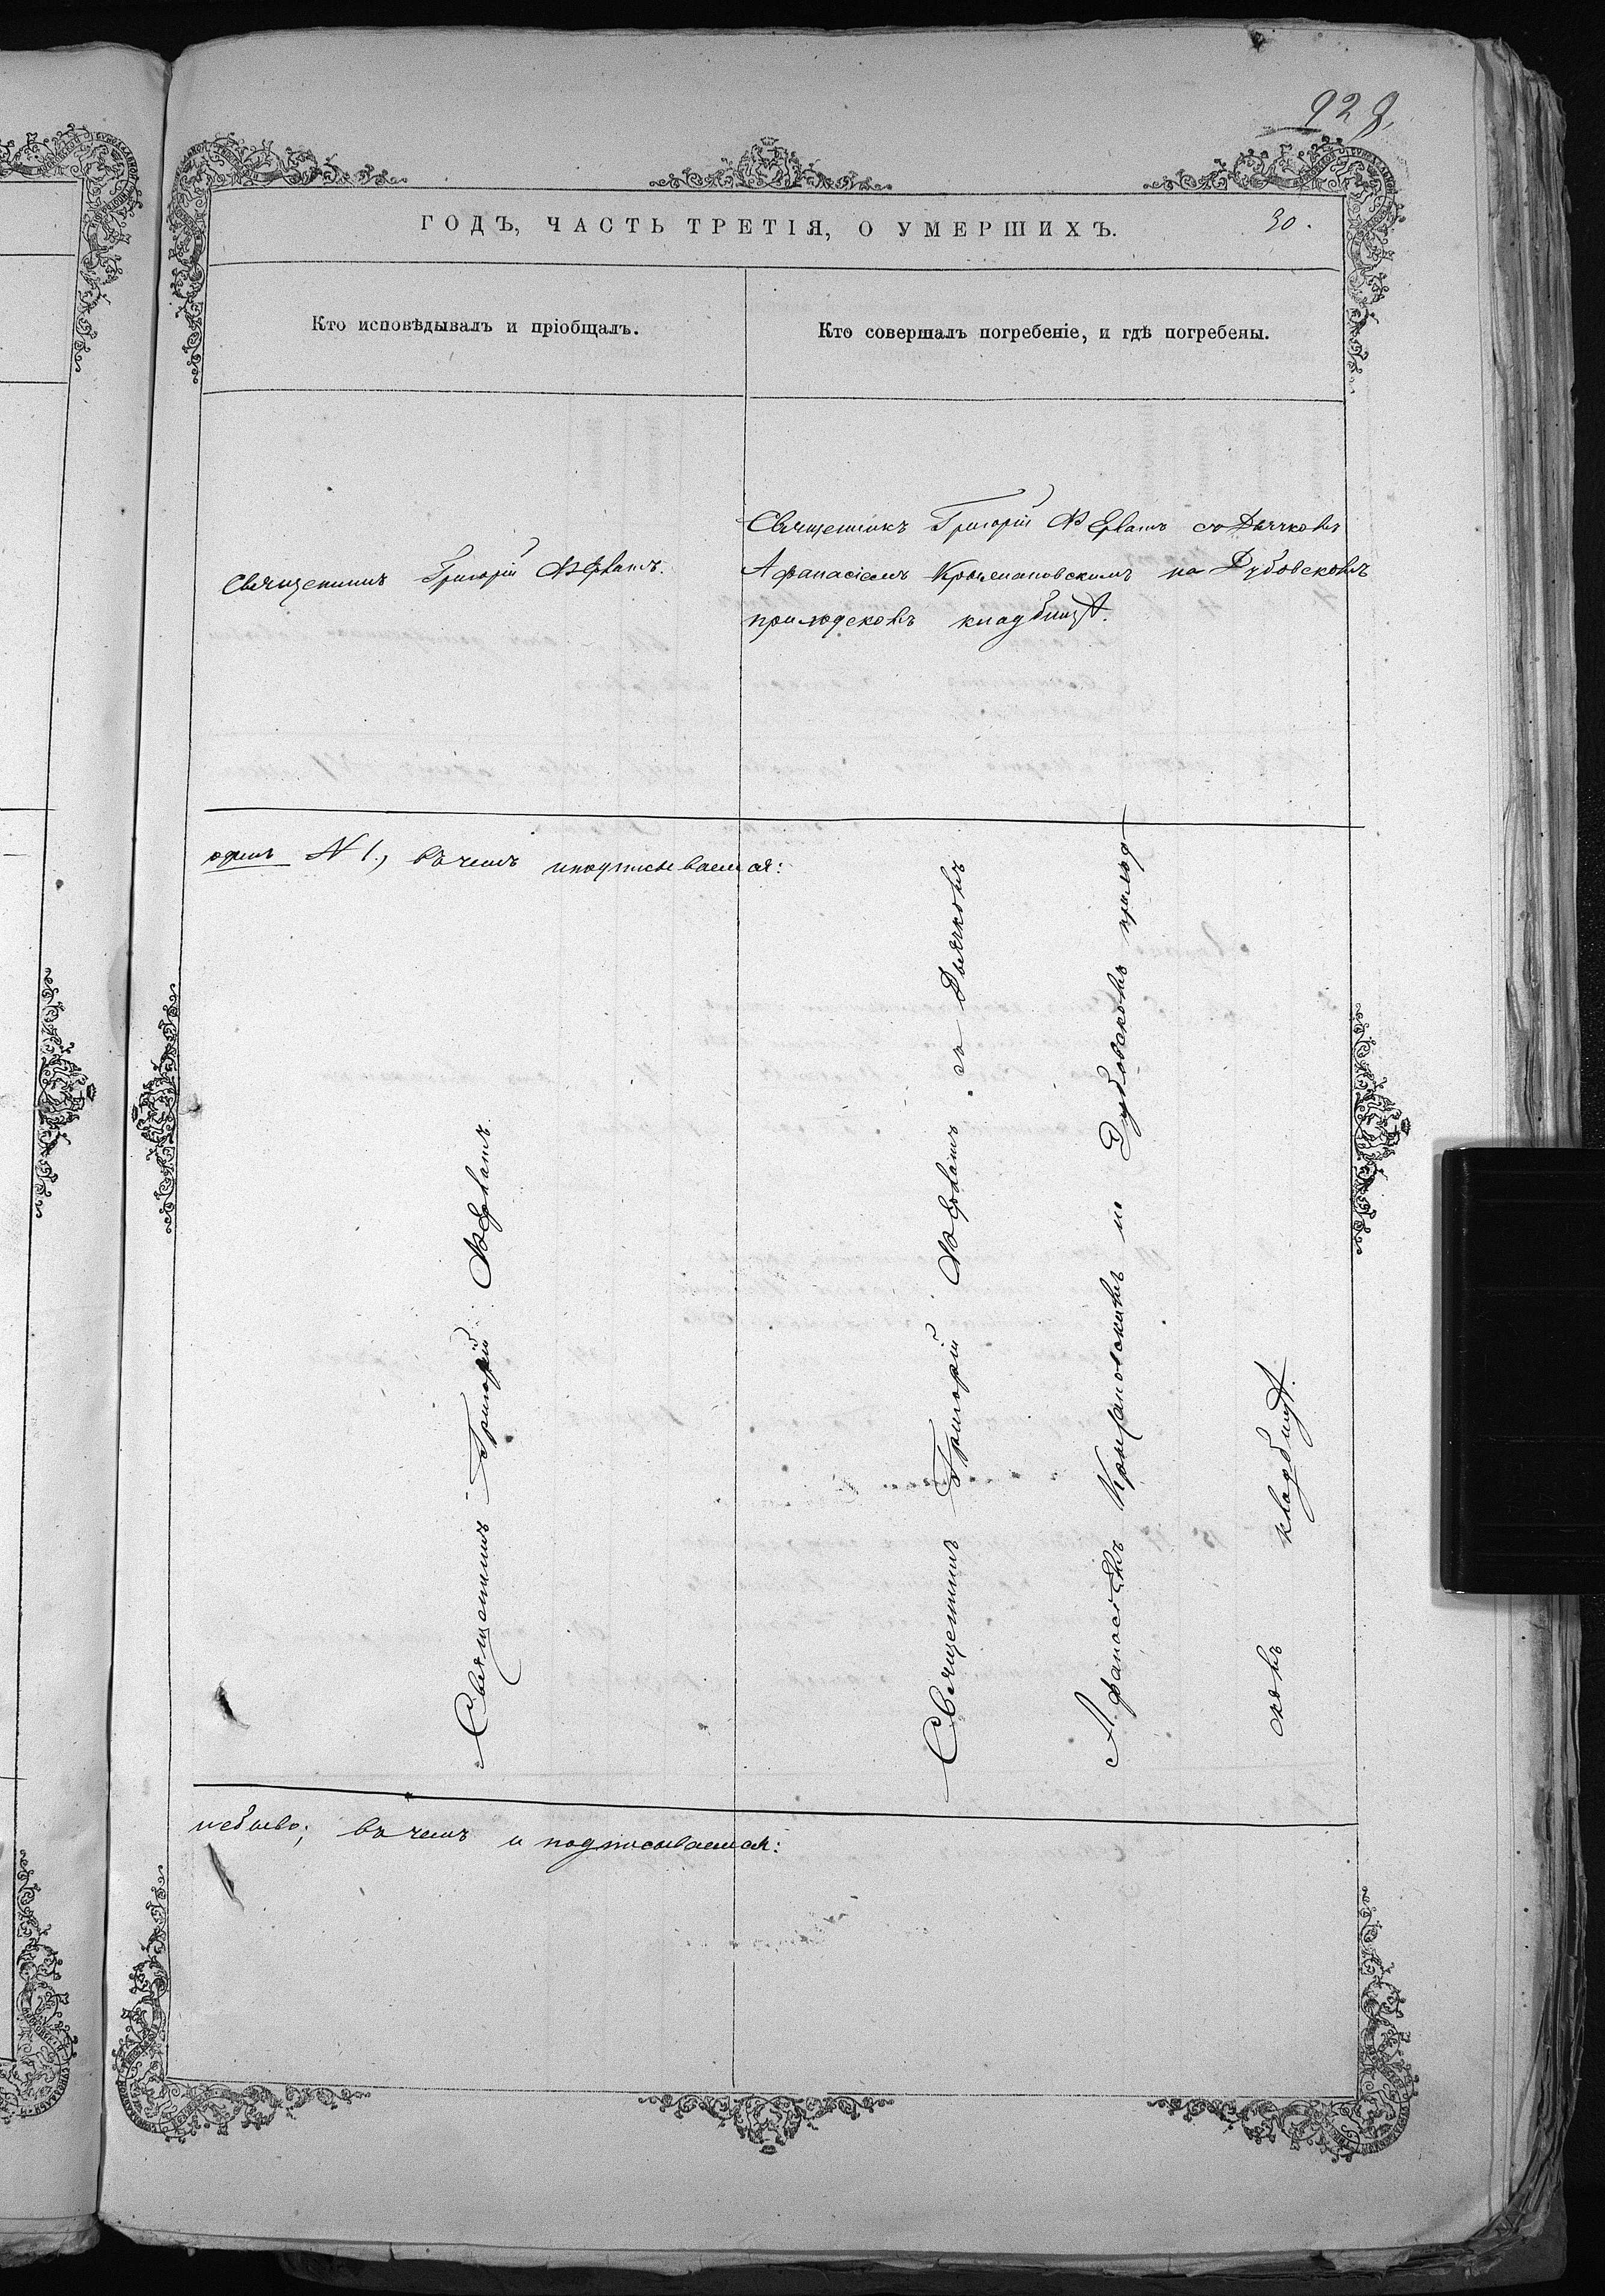 928.
ГОДЪ, ЧАСТЬ ТРЕТІЯ, О УМЕРШИХЪ.
30.
Кто исповѣдывалъ и пріобщалъ.
Кто совершалъ погребеніе, и гдѣ погребены.
Священникъ Григорій
Священникъ Григорій съ Дьячкомъ
Афанасіемъ на Дубовскомъ
приходскомъ кладбищѣ.
одинъ № 1., въ чемъ и подписываемся:
Священникъ Григорій
Священникъ Григорій съ Дьячкомъ
Афанасіемъ на Дубовскомъ приход
скомъ кладбищѣ.
небыло; въ чемъ и подписываемся: